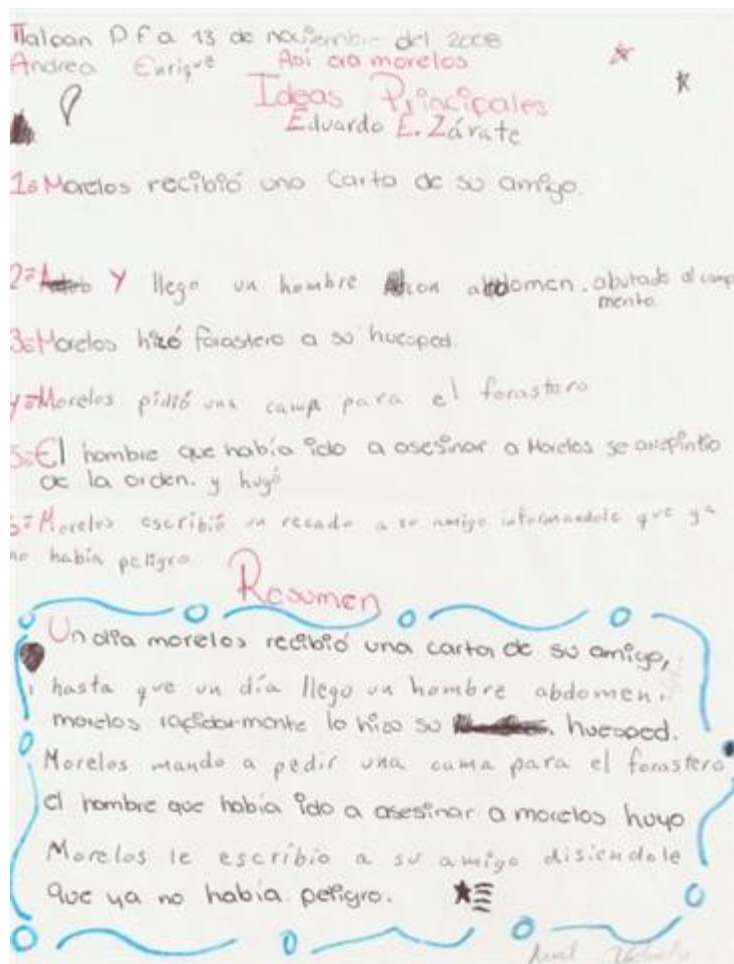 Tlalpan D.F a 13 de noviembre del 2008
Andrea Enrique Asi era morelos
Ideas Principales
Eduardo E. Zárate
1= Morelos recibió una Carta de su amigo.
2= Y llego un hombre con abdomen. abutado al camp
mento
3= Morelos hizó forastero a su huesped.
4= Morelos pidió una camp para el forastero
5= El hombre que había ido a asesinar a Morelos se arrepintio
de la orden. y huyó
6= Morelos escribió un recado a su amigo informandole que ya
no había peligro
Resumen
Un dia morelos recibió una carta de su amigo,
hasta que un día llego un hombre abdomen.
morelos rapidarmente lo hiso su huesped.
Morelos mando a pedir una cama para el forastero
el hombre que había ido a asesinar a morelos huyo
Morelos le escribio a su amigo disiendole
que ya no había peligro.